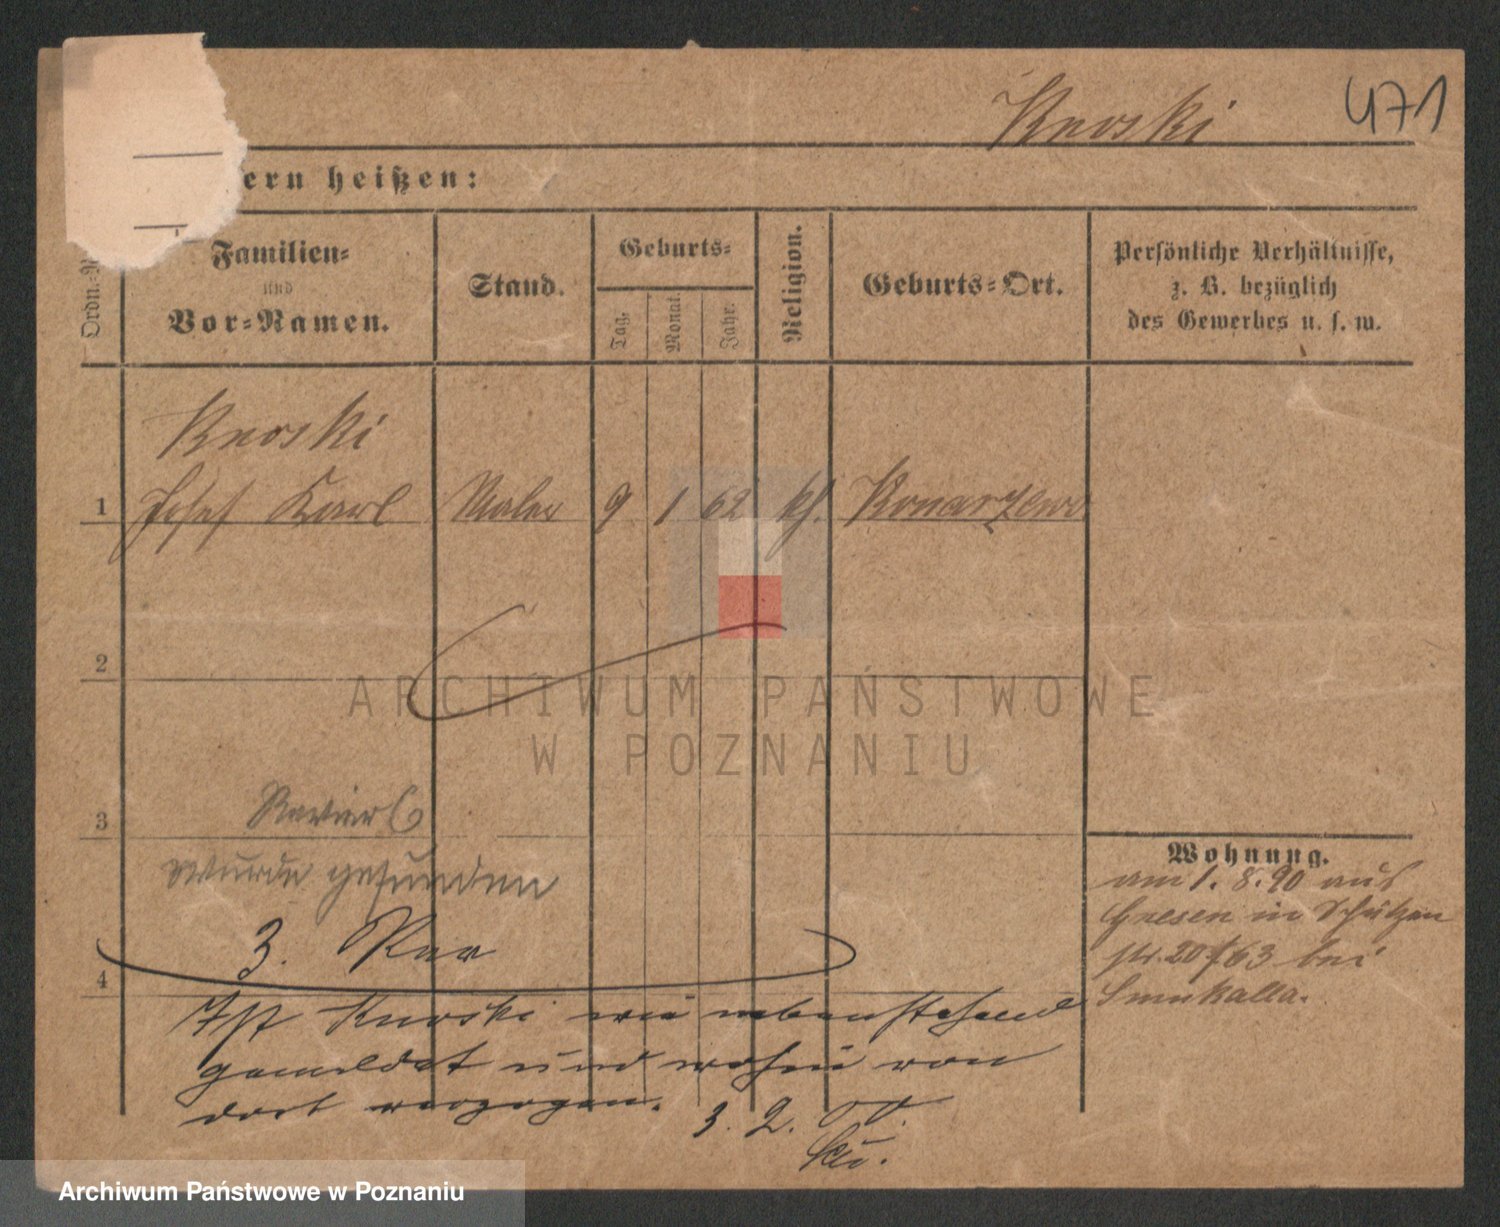 Knoski
471
ern heißen:
Ordn.-N
Familien-
und
Vor-Namen.
Stand.
Geburts-
Tag.
Monat.
Jahr.
Religion.
Geburts-Ort.
Persönliche Verhältnisse,
z. B. bezüglich
des Gewerbes u. s. w.
Knoski
1 Josef Karl Maler 9 1 62 kf. Konarzewo
2
ARCHIWUM PAŃSTWOWE
W POZNANIU
3 Revier 6
wurde gefunden
3. Rev
4
Ist Knoski wie nebenstehend
gemeldet und wohin von
dort verzogen.
3. 2.
Wohnung.
am 1. 8. 90 aus
Gnesen in Schützen
str. 20 f 63 bei
Smukalla.
Archiwum Państwowe w Poznaniu